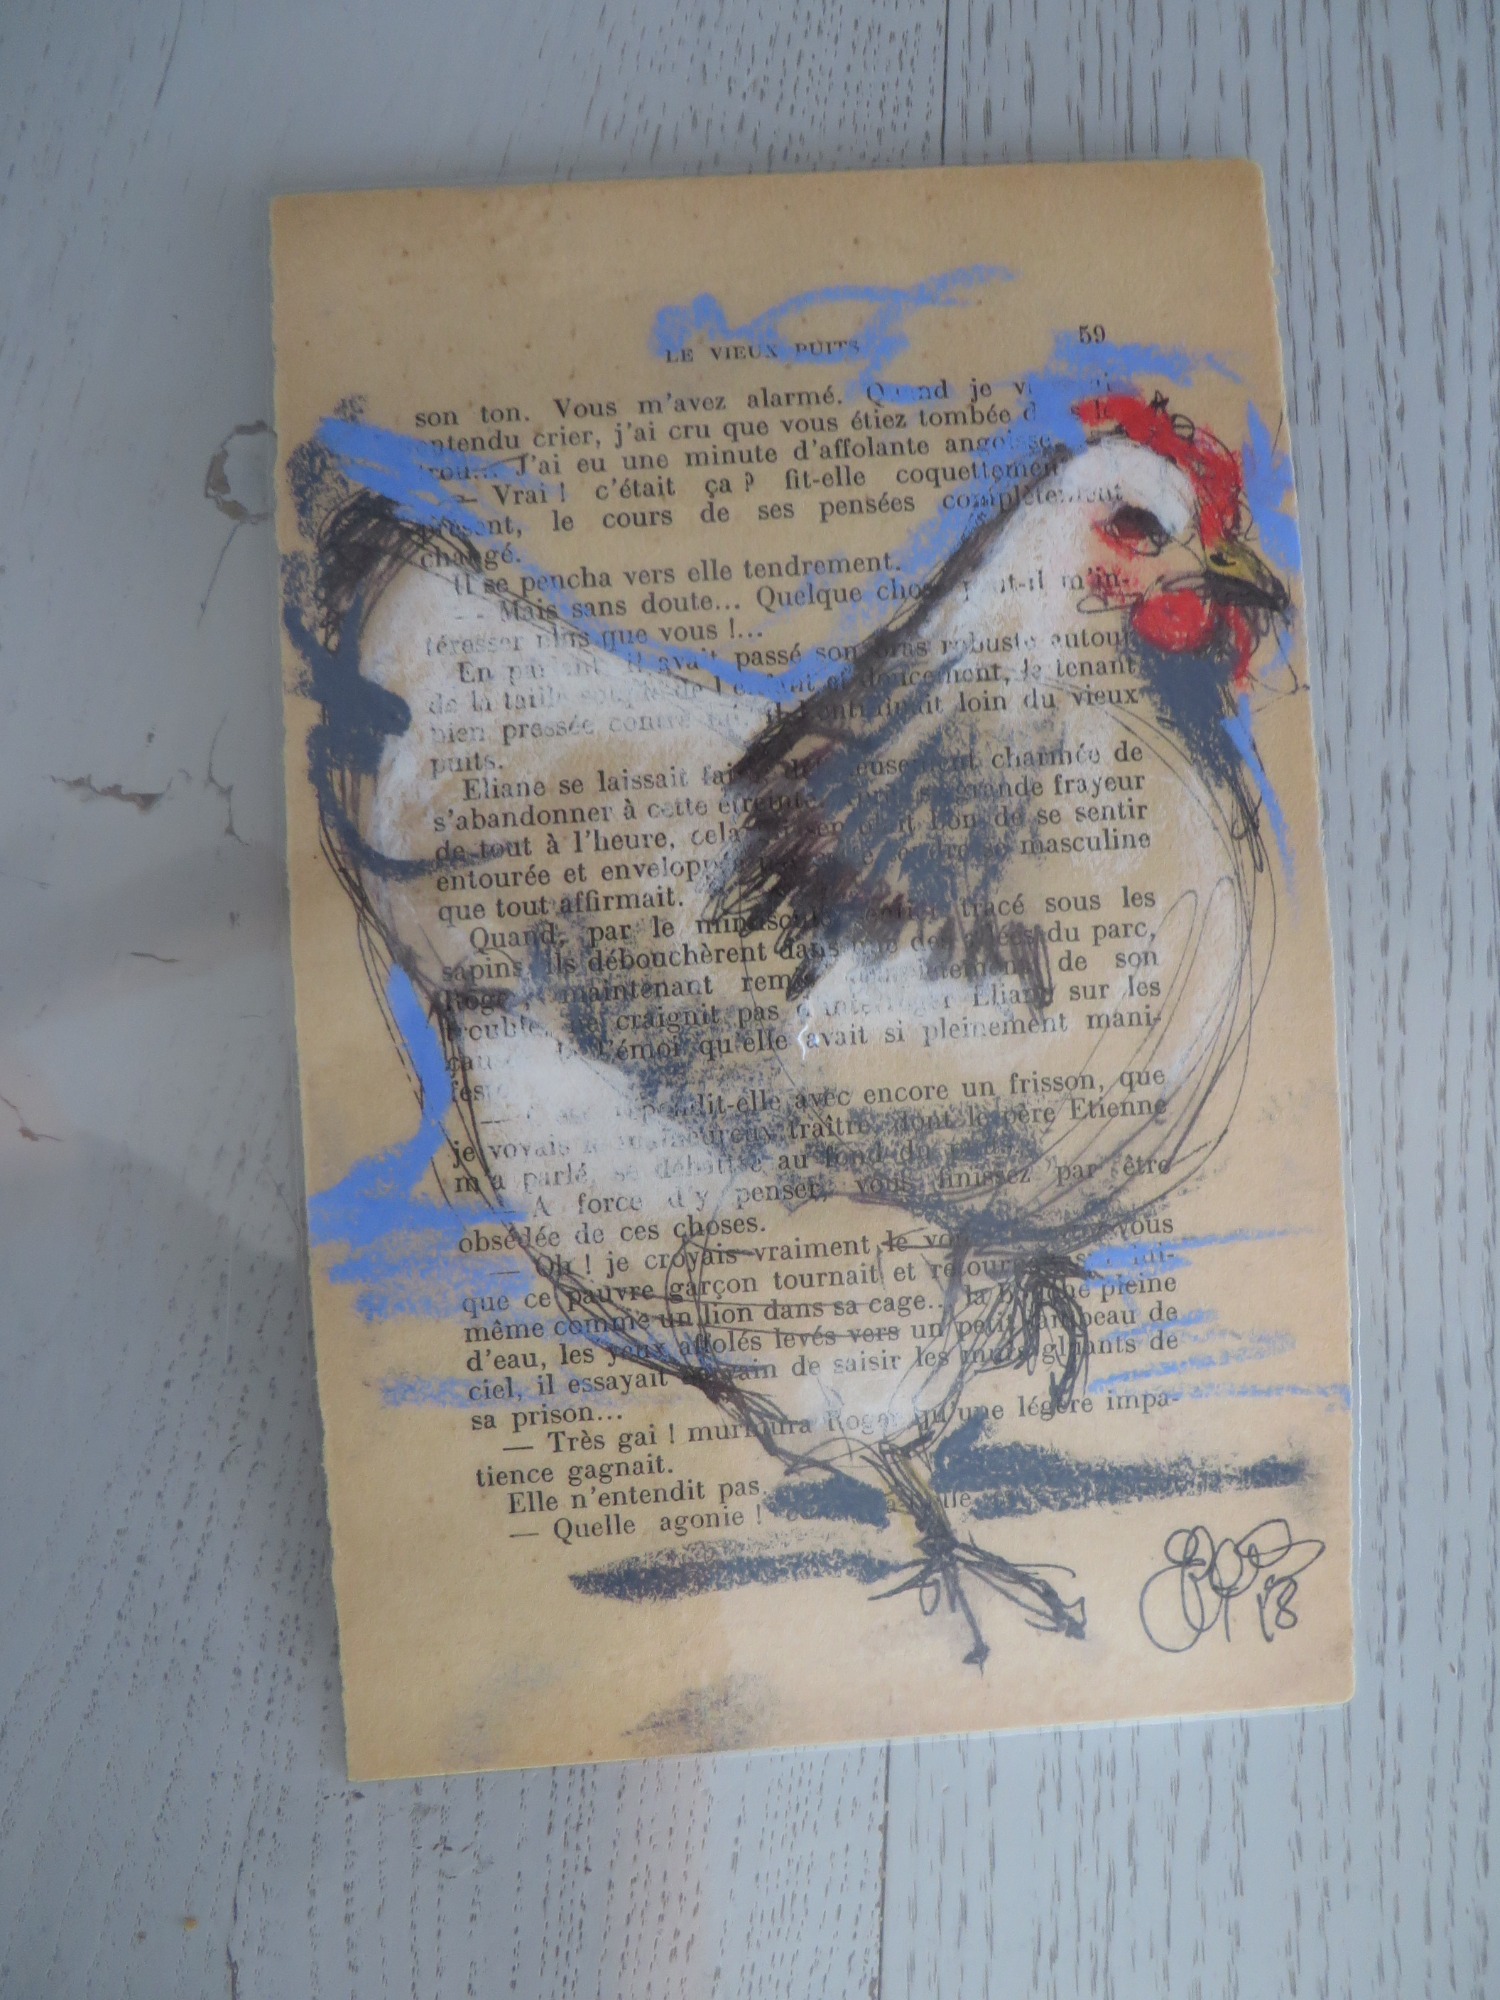 LE VIEUX PUITS
59
son ton. Vous m'avez alarmé. Quand je
entendu crier, j'ai cru que vous étiez tombée
trou... J'ai eu une minute d'affolante angoisse
— Vrai ! c'était ça ? fit-elle coquettement
présent, le cours de ses pensées complètement
changé.
Il se pencha vers elle tendrement.
— Mais sans doute... Quelque chose peut-il m'in-
téresser plus que vous !...
En parlant, il avait passé son bras robuste autour
de la taille souple de l'enfant et doucement, la tenant
bien pressée contre lui, il l'entraînait loin du vieux
puits.
Eliane se laissait charmée de
s'abandonner à cette étreinte. grande frayeur
de tout à l'heure, cela bon de se sentir
entourée et enveloppée masculine
que tout affirmait.
Quand, par le minuscule sentier tracé sous les
sapins, ils débouchèrent dans une des allées du parc,
Roger, maintenant remis complètement de son
trouble, ne craignit pas d'interroger Eliane sur les
l'émoi qu'elle avait si pleinement mani-
fes
dit-elle avec encore un frisson, que
je voyais le malheureux traître, dont le père Etienne
m'a parlé, se débattre au fond du
— A force d'y penser, vous finissez par être
obsédée de ces choses.
— Oh ! je croyais vraiment le vous
que ce pauvre garçon tournait et lui-
même comme un lion dans sa cage... la bouche pleine
d'eau, les yeux affolés levés vers un petit lambeau de
ciel, il essayait en vain de saisir les murs gluants de
sa prison...
— Très gai ! murmura Roger qu'une légère impa-
tience gagnait.
Elle n'entendit pas.
— Quelle agonie !
18